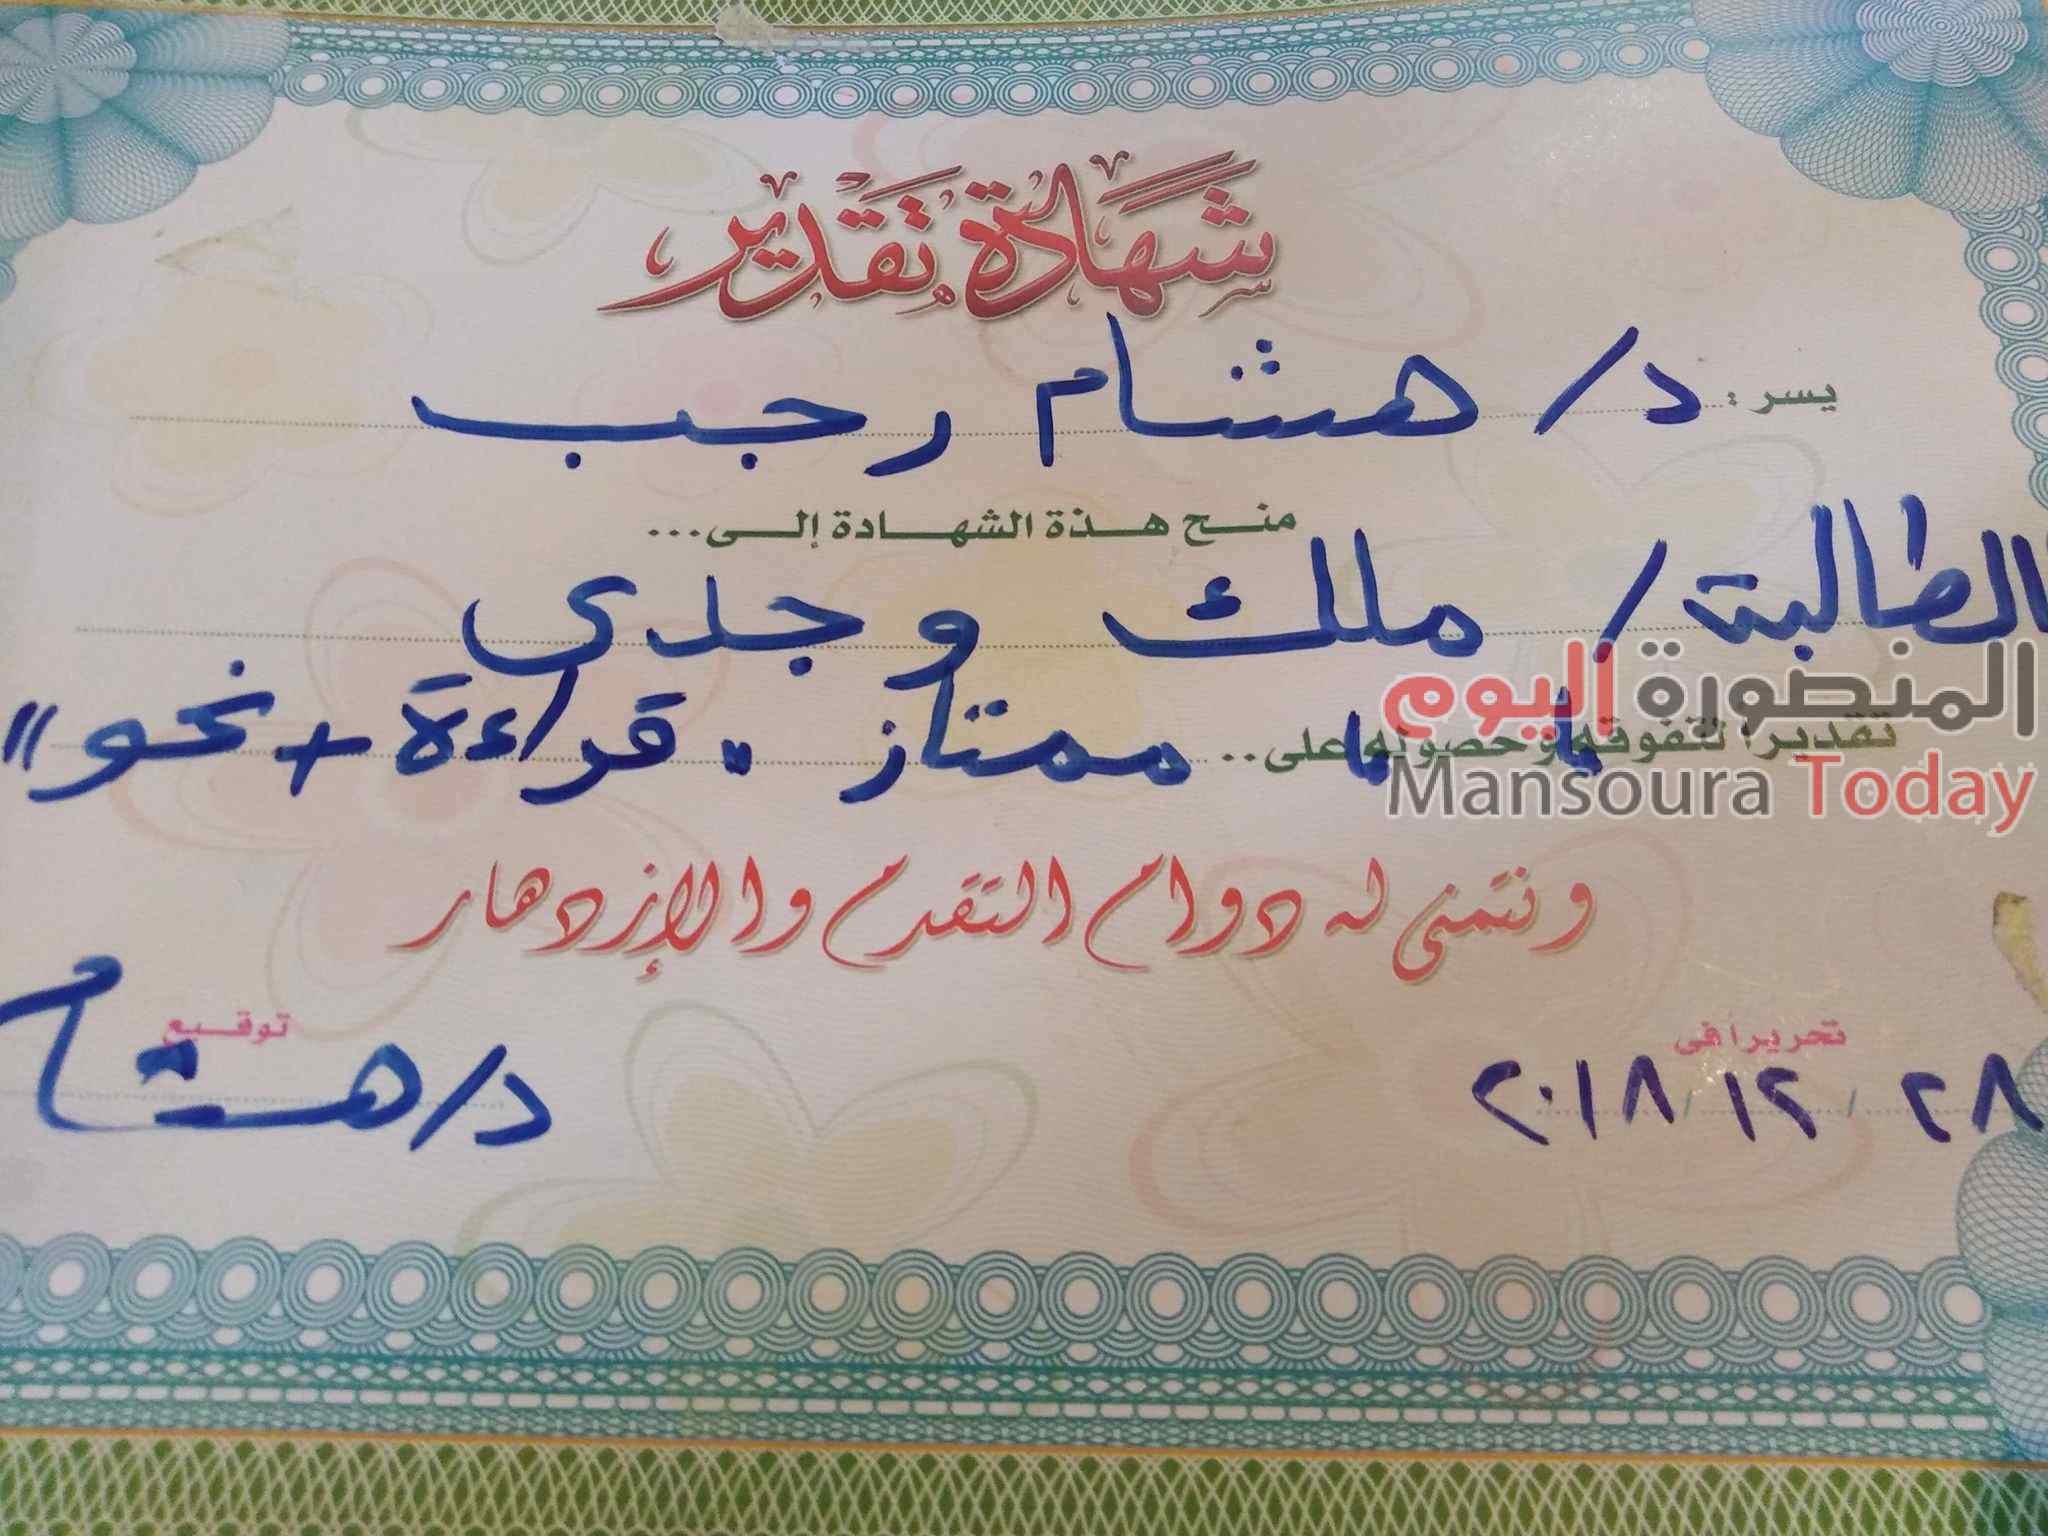 شهادة تقدير
يسر : د/ هشام رجب
منح هذة الشهادة إلى...
الطالبة/ ملك وجدى
المنصورة اليوم
تقديراً لتفوقه وحصوله على.. ممتاز " قراءة + نحو "
Mansoura Today
ونتمنى له دوام التقدم والإزدهار
تحريرا فى
توقيع
٢٨ / ١٢ / ٢٠١٨
د/ هشام